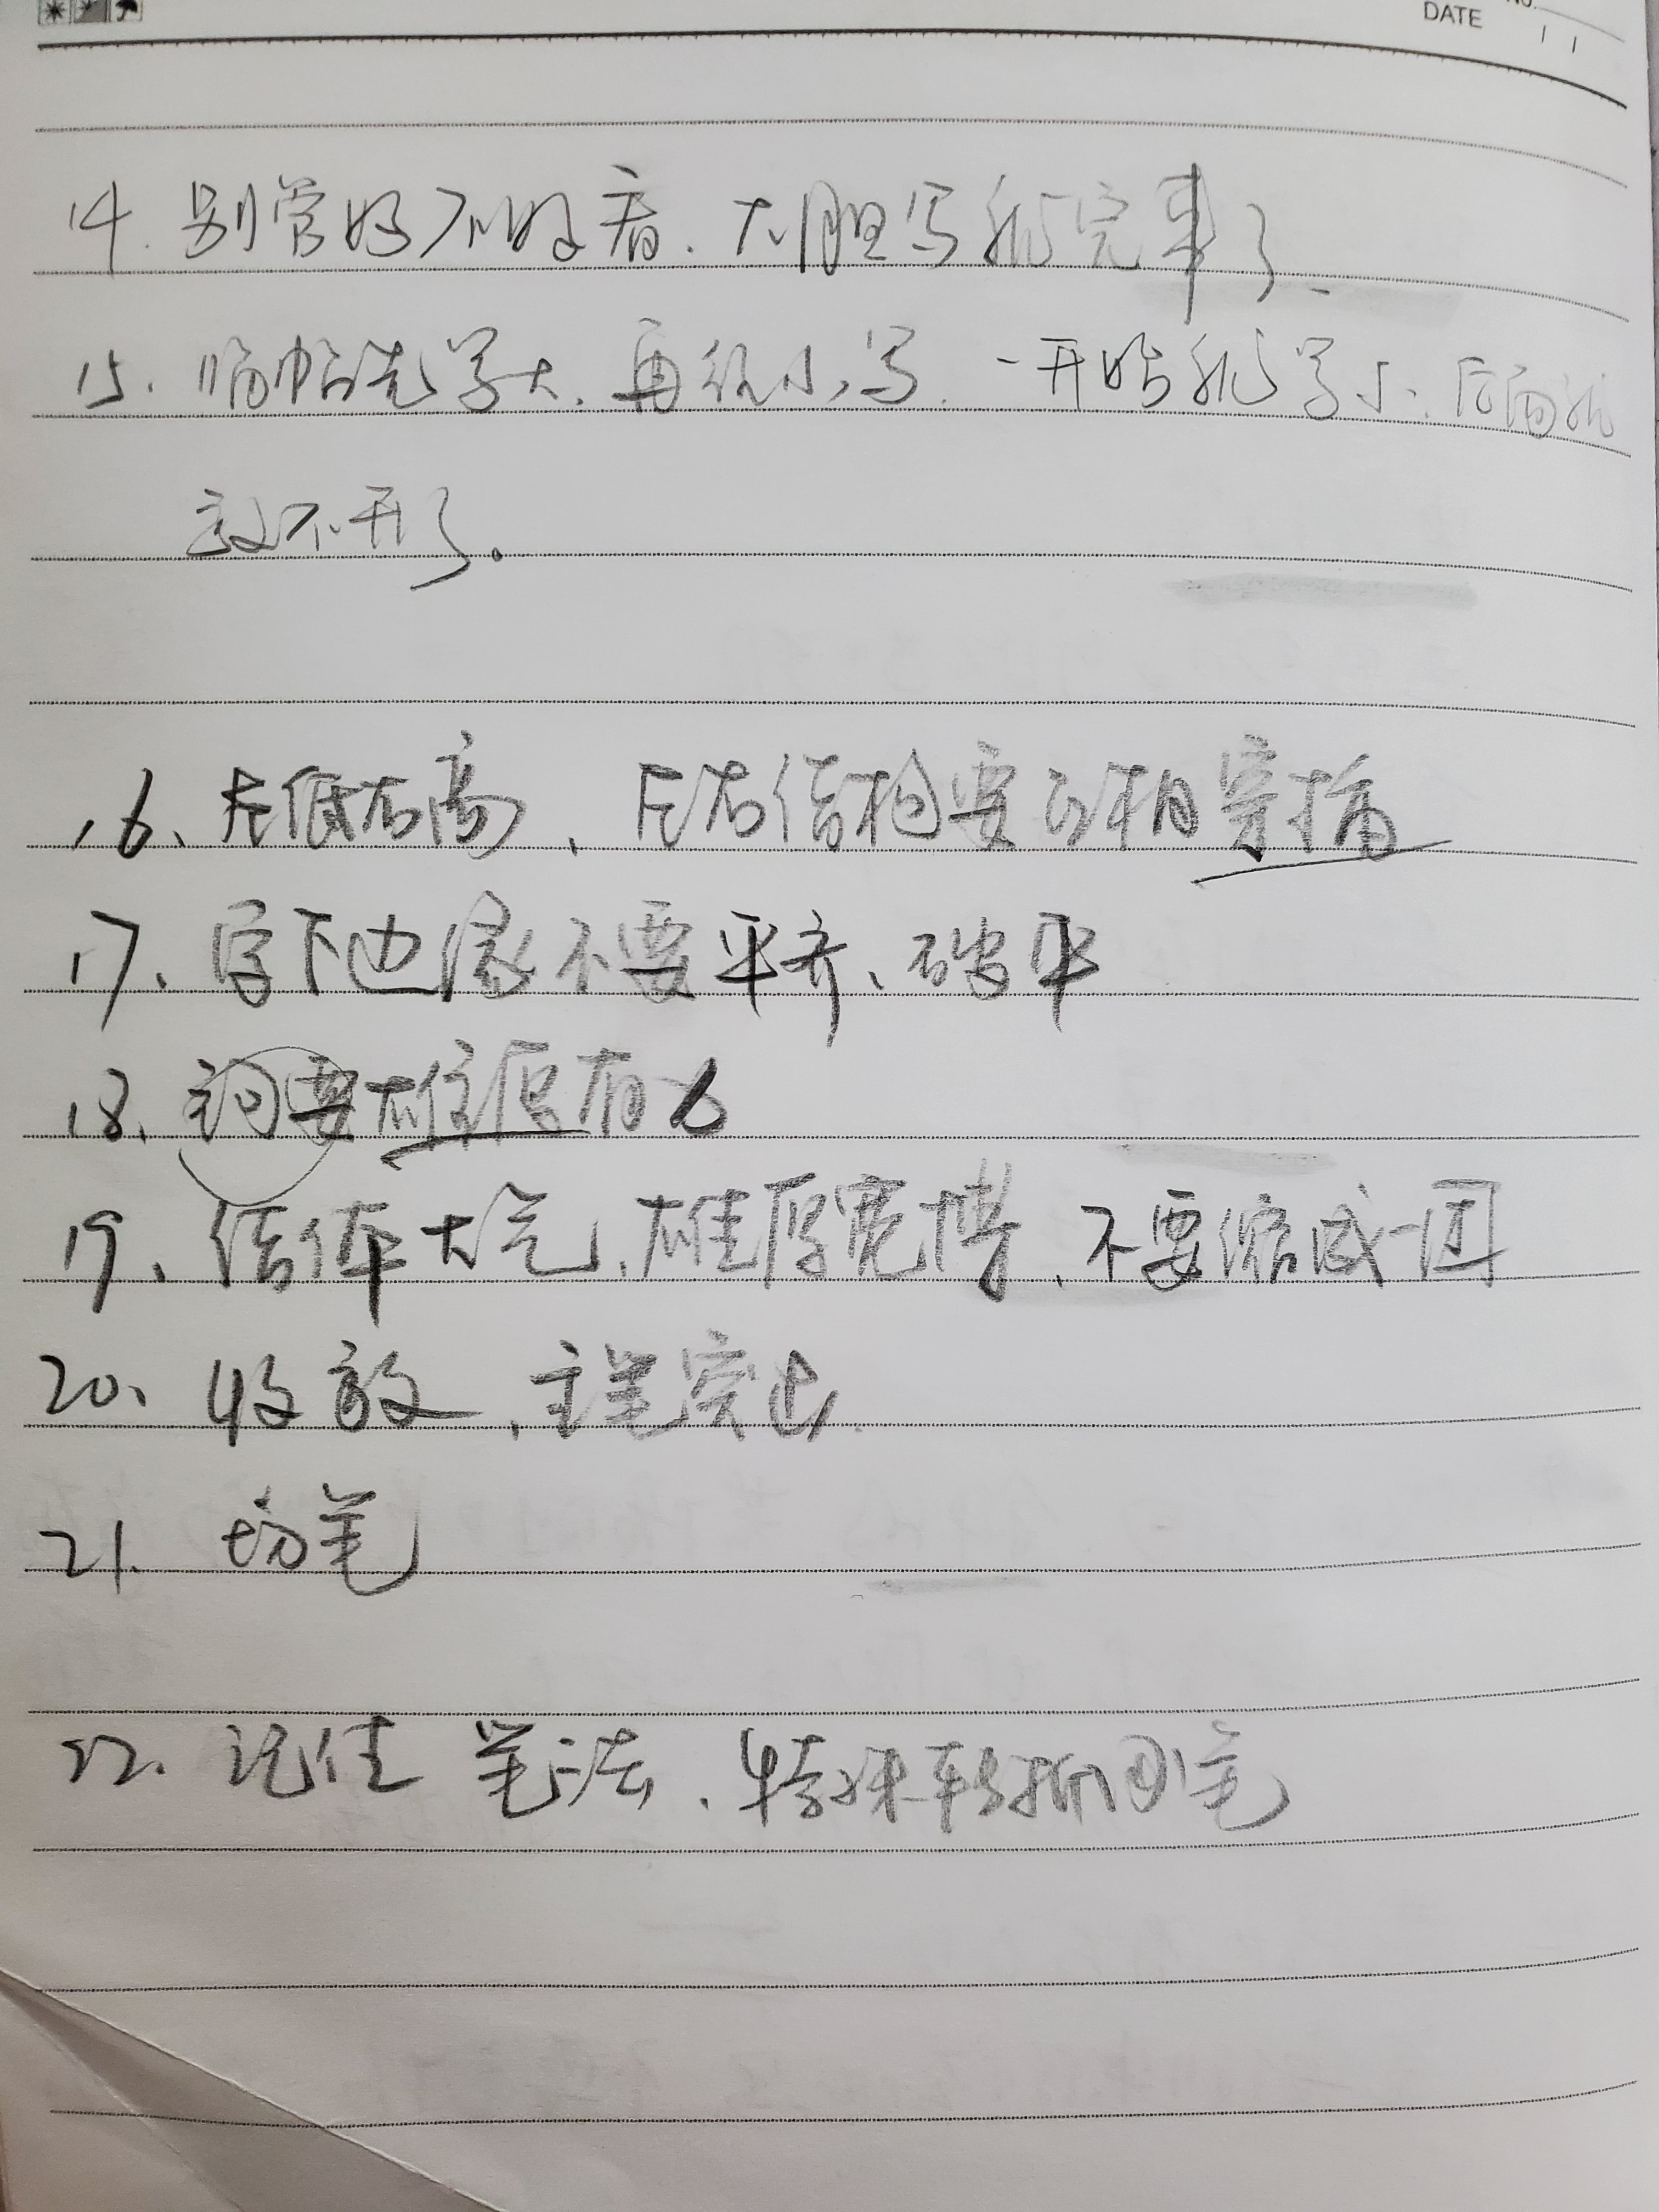 No.
DATE
14. 别管好不好看. 大胆写就完事了.
15. 临帖先写大. 再往小写. 一开始就写小. 后面就
放不开了。
16、左低右高、左右结构要互相穿插
17、字下边缘不要平齐、破平
18、要雄厚有力
19、结体大气、雄厚宽博、不要缩成一团
20、收放、主笔突出.
21. 切笔
22. 记住 笔法、特殊转折回笔